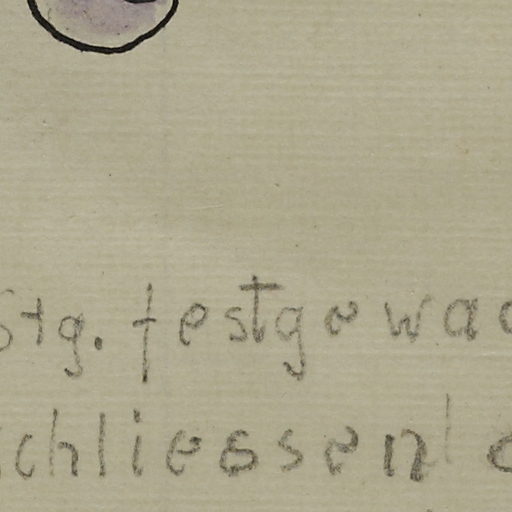 Stg. festgewac
schliessen